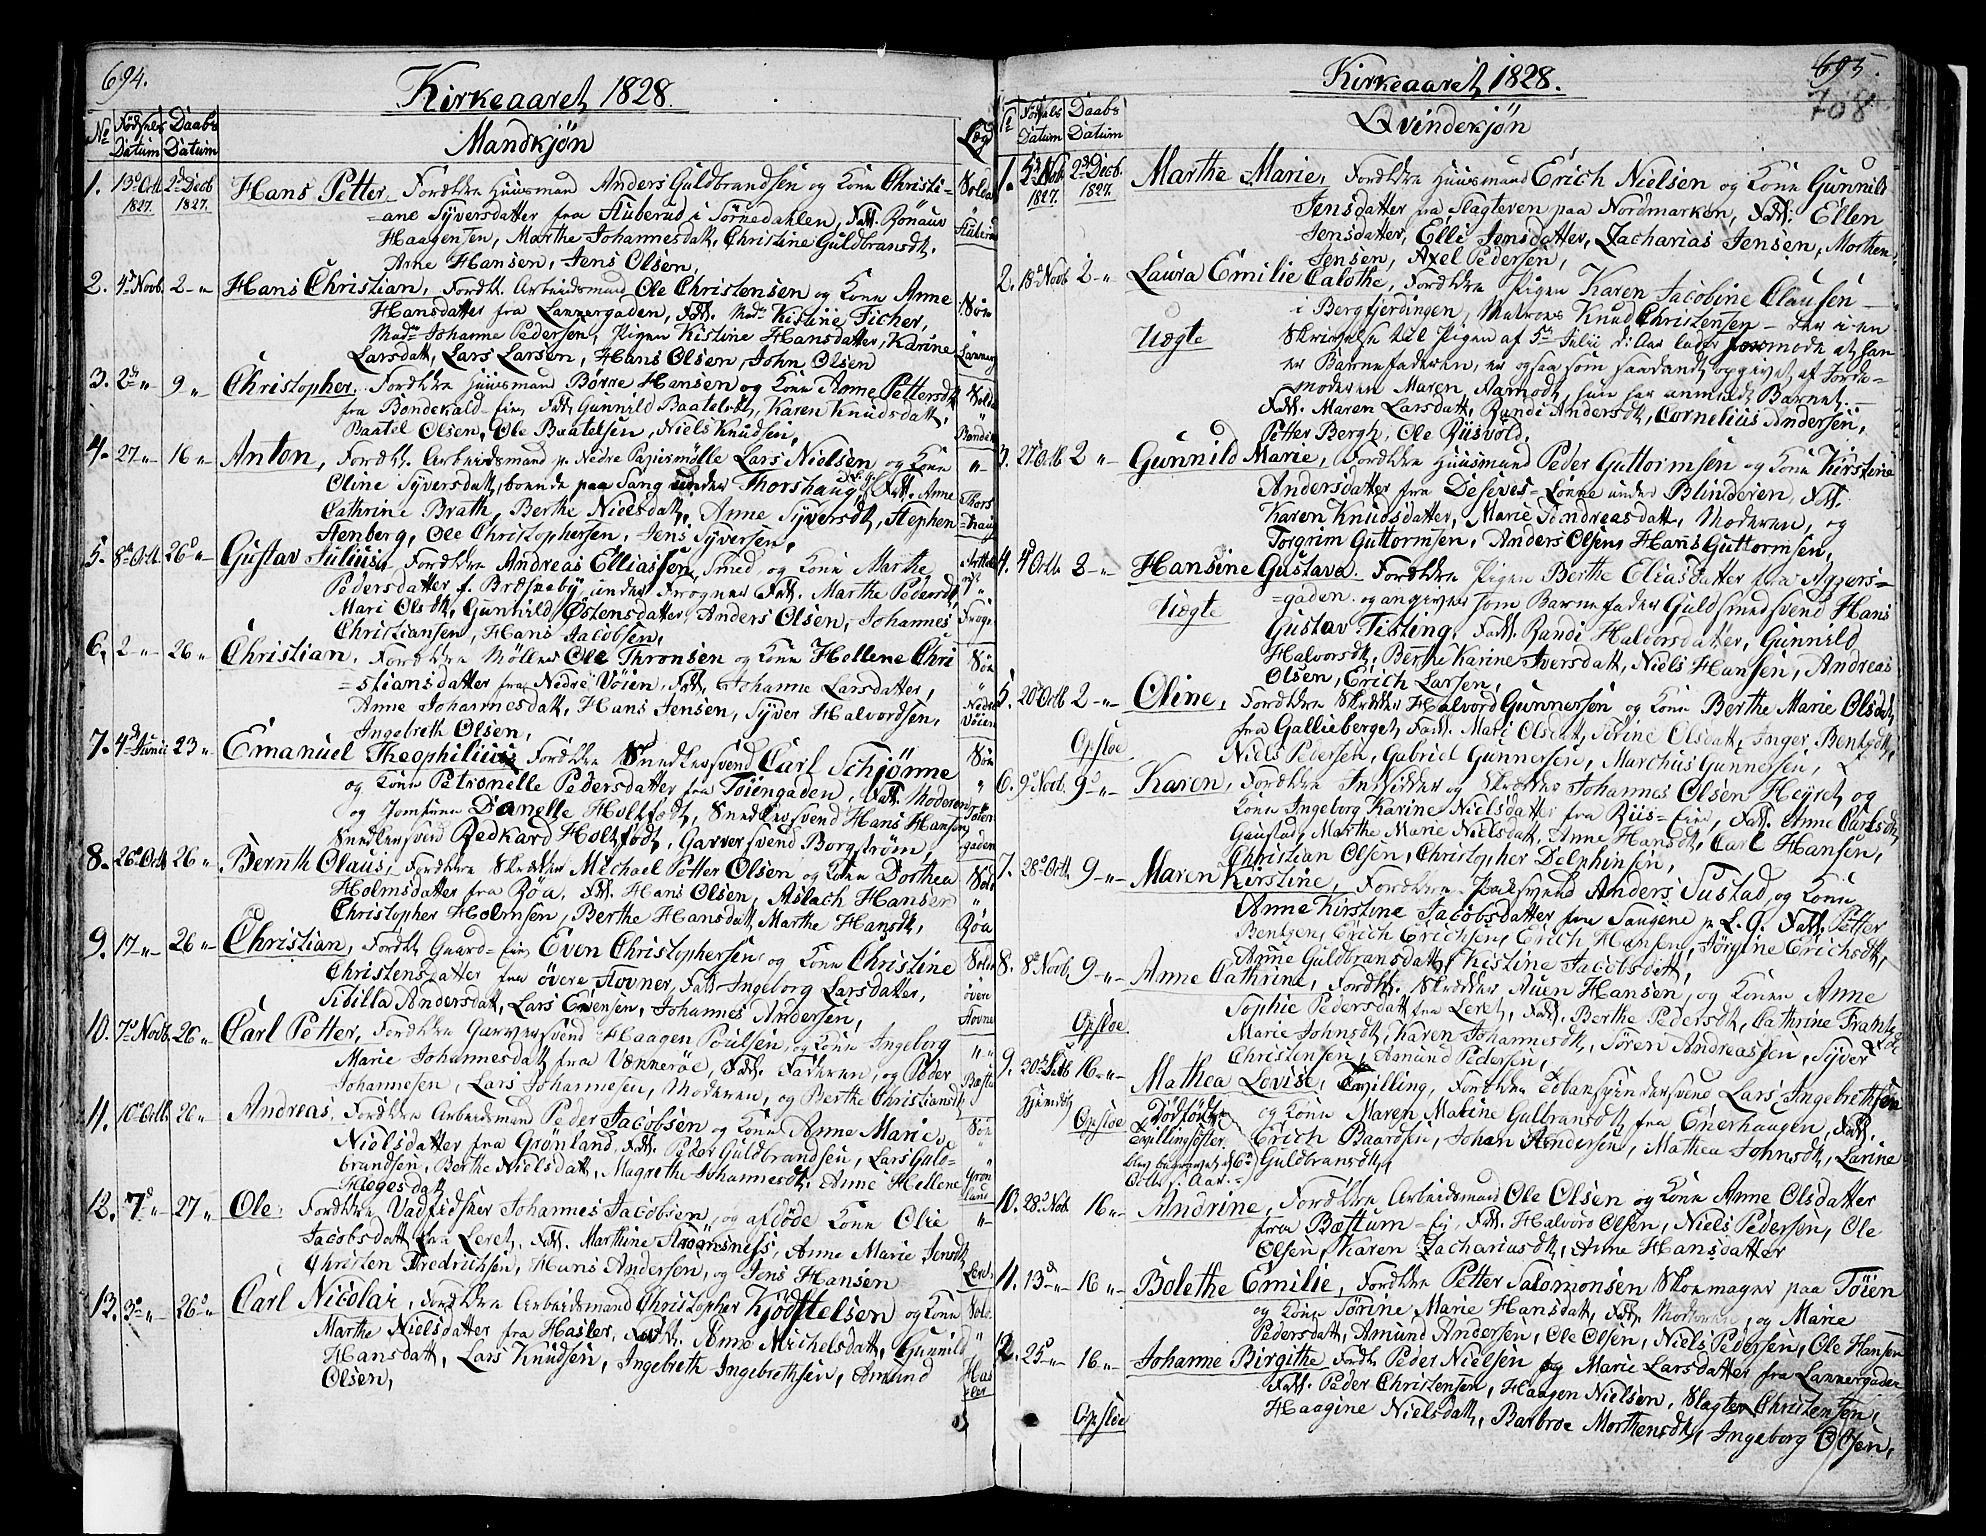 694.
Kirkeaaret 1828.
No Fødsels Datum Daabs Datum Mandkjøn Læg
1. 13d Oct 1827. 2d Decb 1827. Hans Petter, Forældre Huusmand Anders Guldbrandsen og Kone Christi-
=ane Syversdatter fra Stuberud i Sørkedahlen, Fadd. Rønaug
Haagensen, Marthe Johannesdatt, Christine Guldbransdt.
Arne Hansen, Jens Olsen,
2. 4d Novb. 2 - " Hans Christian, Forældr. Arbeidsmand Ole Christensen og Kone Anne
Hansdatter fra Lannergaden, Fadd. Mad. Kistine Ficher,
Mad. Johanne Pedersen, Pigen Kistine Hansdatter, Karine
Larsdatt, Lars Larsen, Hans Olsen, John Olsen
3. 2d " 9 " Christopher. Forældre Huusmand Børre Hansen og Kone Anne Pettersdt
fra Bondekald-Eie, Fadd. Gunnild Baatelsdt, Karen Knudsdatt,
Baatel Olsen, Ole Baatelsen, Niels Knudsen,
4. 27 " 16 " Anton, Forældr. Arbeidsmand p. Nedre Papiermølle Lars Nielsen og Kone
Oline Syversdatt, boende paa Sang under Thorshaug, Fadd. Anne
Cathrine Brath, Berthe Nielsdatt, Anne Syversdt, Stephen
Stenberg, Ole Christophersen, Jens Syversen,
5. 8d Oct. 26d " Gustav Julius, Forældre Andreas Elliassen, Smed, og Kone Marthe
Pedersdatter f. Bræsneby under Frogner Fadd. Marthe Pedersdt
Mari Olsdt, Gunnild Østensdatter, Anders Olsen, Johannes
Christiansen, Hans Jacobsen,
6. 2 - " 26 " Christian. Forældre Møller Ole Thronsen og Kone Hellene Chri
=stiansdatter fra Nedre Vøien, Fadd. Johanne Larsdatter,
Anne Johannesdatt, Hans Jensen, Syver Halvordsen,
Ingebreth Olsen,
7. 4d Junii 23 " Emanuel Theophilius, Forældre Snedkersvend Carl Schjønne
og Kone Petronelle Pedersdatter fra Tøiengaden, Fadd. Moderen
og Jomfrue Danelle Holtfodt, Snedkersvend Hans Hansen
Snedkersvend Redkard Holtfodt, Garversvend Borgstrøm,
8. 26d Oct 26 " Bernth Olaus, Forældre Skrædder Michael Petter Olsen og Kone Dorthea
Holmsdatter fra Røa, Fadd. Hans Olsen, Aslach Hansen
Christopher Holmsen, Berthe Hansdatt, Marthe Hansdt,
9. 17 - " 26 " Christian, Forældr. Gaard-Eier Even Christophersen og Kone Christine
Christensdatter fra øvere Hovner, Fadd. Ingeborg Larsdatter,
Sibilla Andersdatt, Lars Evensen, Johannes Andersen,
10. 7d Novb. 26 " Carl Petter, Forældre Garversvend Haagen Poulsen, og Kone Ingeborg
Marie Johannesdatt fra Vonnerøe, Fadd. Faderen, og Peder
Johannesen, Lars Johannesen, Moderen, og Berthe Christiansdt
11. 10d Octb 26 " Andreas, Forældre Arbeidsmand Peder Jacobsen og Kone Anne Marie
Nielsdatter fra Grønland, Fadd. Peder Guldbrandsen, Lars Guld-
brandsen, Berthe Nielsdatt, Magrethe Johannesdt, Anne Hellene
Hagesdatt
12. 7d - " 27 " Ole, Forældre Vadfidsker Johannes Jacobsen, og afdøde Kone Olie
Jacobsdatt fra Leret, Fadd. Marthine Strømsness, Anne Marie Jensdt
Christen Fredrichsen, Hans Andersen, og Jens Hansen
13. 3d " 26d " Carl Nicolai, Forældre Arbeidsmand Christopher Kjødttelsen og Kone
Marthe Nielsdatter fra Hasler, Fadd. Anne Michelsdatt, Gunnild
Hansdatt, Lars Knudsen, Ingebreth Ingebrethsen, Amund
Olsen,
695.
708
Kirkeaaret 1828.
Fødsels Datum Daabs Datum Qvindekjøn
1. 5d Nov 1827. 2d Decb. 1827. Marthe Marie, Forældre Huusmand Erich Nielsen og Kone Gunnild
Jensdatter fra Slagteren paa Nordmarken, Fadd. Ellen
Jensdatter, Elli Jensdatter, Zacharias Jensen, Morthen
Jensen, Axel Pedersen,
2. 18d Novb 2 - " Laura Emilie Calothe, Forældre Pigen Karen Jacobine Clausen -
i Bergfjerdingen, Matros Knud Christensen - der i en
Uægte Skrivelse til Pigen af 5te Julii d: Aar lader formode at han
er Barnefaderen, er ogsaa som saadandt opgivet, af Jorde-
moderen Maren Aamodt, hun har anmeldt Barnet. -
Fadd. Maren Larsdatt, Randi Andersdt, Cornelius Andersen,
Petter Bergh, Ole Riisvold,
3. 27d Octb 2 " Gunnild Marie, Forældre Huusmand Peder Guttormsen og Kone Kirstine
Andersdatter fra Deseves-Løkke under Blinderen, Fadd.
Karen Knudsdatter, Marie Andreasdatt, Moderen, og
Torgrim Guttormsen, Anders Olsen, Hans Guttormsen,
4. 4d Octb. 2 - " Hansine Gustava. Forældre Pigen Berthe Eliasdatter fra Aggers-
=gaden og angiver som Barnefader Guldsmedsvend Hans
Uægte Gustav Tisting, Fadd. Randi Haldorsdatter, Gunnild
Halvorsdt, Berthe Karine Iversdatt, Niels Hansen, Andreas
Olsen, Erich Larsen,
5. 20d Octb 2 - " Oline, Forældre Skrædder Halvord Gunnersen og Kone Berthe Marie Olsdatt
fra Gallieberget, Fadd. Mari Olsdatt, Sirine Olsdatt, Inger Bentsdt,
Opsloe Niels Pedersen, Gabriel Gunnersen, Marthus Gunnersen,
6. 9d Novb. 9d - " Karen, Forældre Inderster og Skrædder Johannes Olsen Heyret og
Kone Ingeborg Karine Nielsdatter fra Riis-Eie, Fadd. Anne Carlsdt,
Gaustad, Marthe Marie Nielsdatt, Anne Hansdt, Carl Hansen,
Christian Olsen, Christopher Delphinsen,
7. 28d Oct. 9 - " Maren Kirstine, Forældre Pakssvend Anders Sustad, og Kone
Anne Kirstine Jacobsdatter fra Saugene p. L. G. Fadd. Petter
Bentsen, Erich Erichsen, Erich Hansen, Jørgine Erichsdt,
Anne Guldbransdatt, Kistine Jacobsdatt,
8. 8d Novb. 9 - " Anne Cathrine, Forældr. Skrædder Auen Hansen, og Konen Anne
Sophie Pedersdatt fra Leret, Fadd. Berthe Pedersdt, Cathrine Frantzdt
Opsloe Marie Johnsdt, Karen Johannesdt, Søren Andreassen, Syver
Christensen, Asmund Pedersen,
9. 30d Octb 16 - " Mathea Lovise, Tvilling, Forældre Bomansspindersvend Lars Ingebrethsen
og Kone Maren Matine Gulbransdt fra Enerhaugen, Fadd.
Opsloe Erich Baardsen, Johan Andersen, Mathea Johnsdt, Larine
Guldbransdt,
Dødfødte
Tvillingsøster
blev begravet d 6d
Octbr. s. Aar. -
10. 28d Nov. 16 " Andrine, Forældre Arbeidsmand Ole Olsen og Kone Anne Olsdatter
fra Bæstum-Eie, Fadd. Halvord Olsen, Niels Pedersen, Ole
Olsen, Karen Zachariasdt, Anne Hansdatter
11. 13d - " 16 " Bolethe Emilie, Forældre Petter Salomonsen Skomager paa Tøien
og Kone Sørine Marie Hansdatt, Fadd. Moderen, og Marie
Pedersdatt, Amund Andersen, Ole Olsen, Niels Pedersen, Ole Hansen
12. 25d - " 16 - " Johanne Birgithe Forældr. Peder Nielsen og Marie Larsdatter fra Lannergaden
Fadd. Peder Christensen, Haagen Nielsen, Slagter Christensen,
Opsloe Haagine Nielsdatt, Barbroe Morthensdt, Ingeborg Olsen,